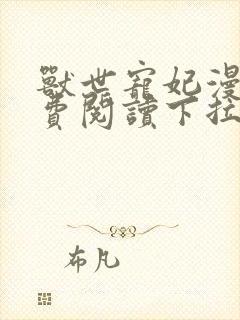 獸世寵妃漫
費閱讀下拉
布凡